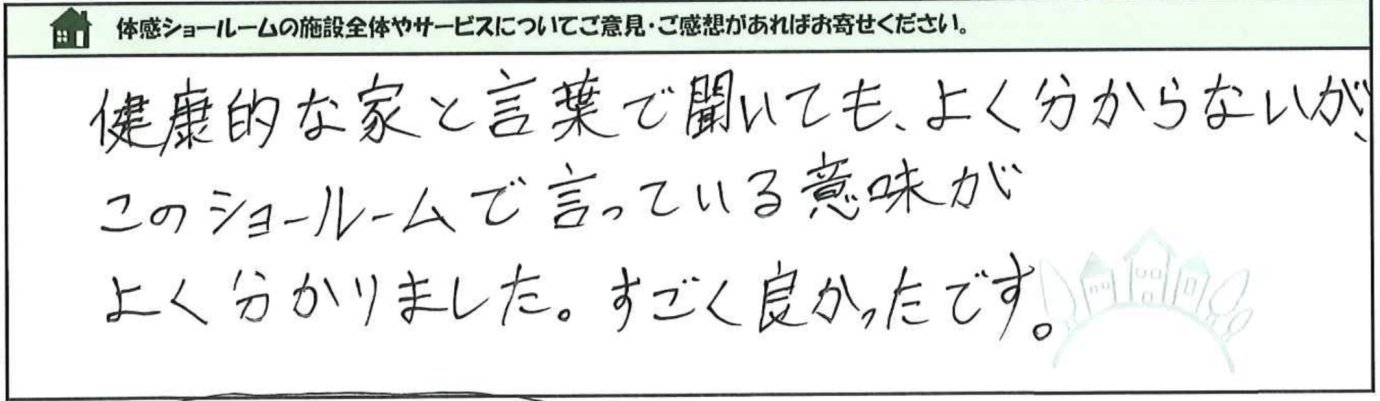 体感ショールームの施設全体やサービスについてご意見・ご感想があればお寄せください。
健康的な家と言葉で聞いても、よく分からないが、
このショールームで言っている意味が
よく分かりました。すごく良かったです。